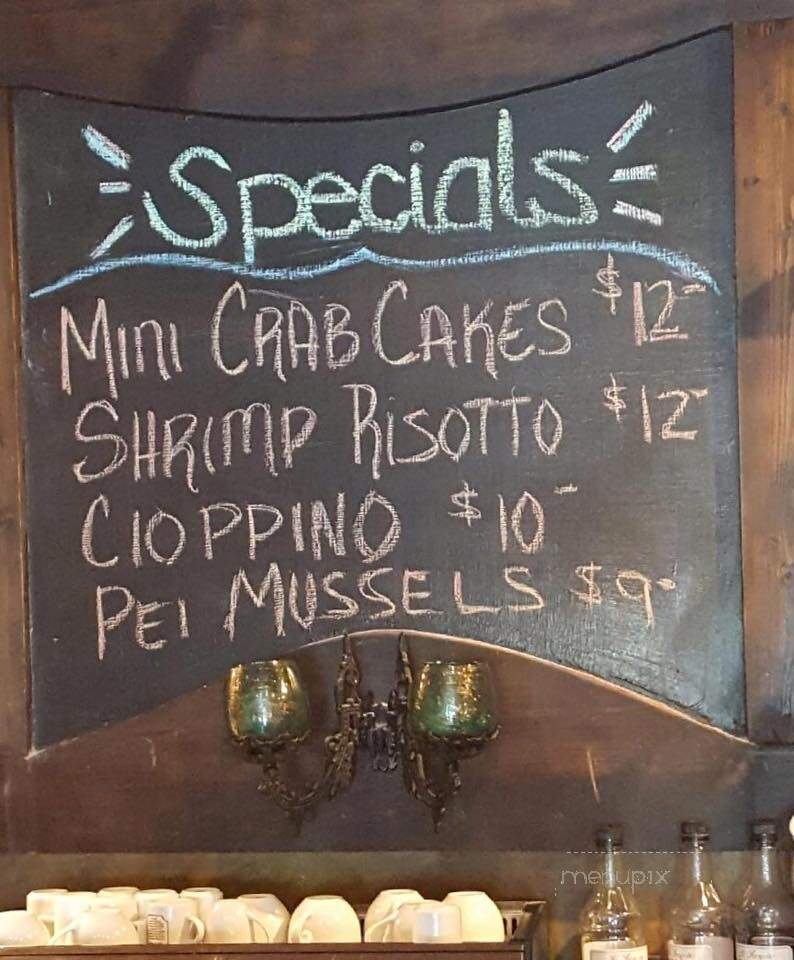 Specials
MINI CRAB CAKES $12-
SHRIMP RISOTTO $12-
CIOPPINO $10-
PEI MUSSELS $9-
menupix